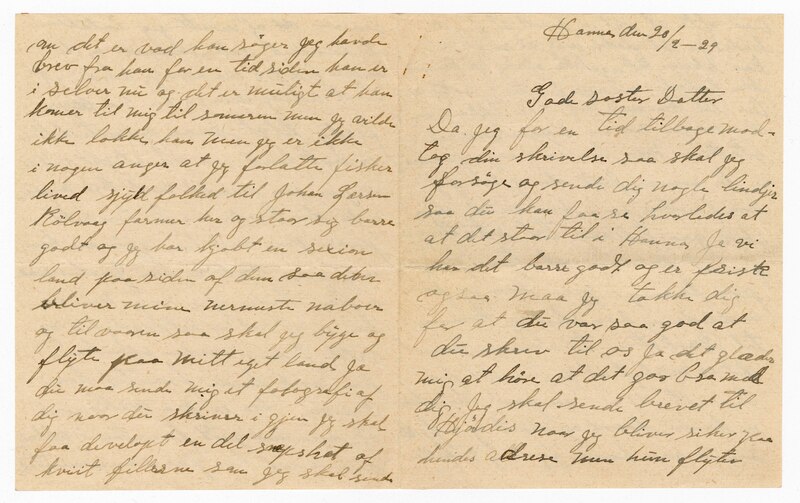 Hanna den 20/2-29
Gode söster Datter
Da jeg for en tid tilbage mod-
tog din skrivelse saa skal jeg
forsöge og sende dig nogle lindjer
saa du kan faa se hvorledes at
at det staar til i Hanna Ja vi
har det barre godt og er friske
og saa maa jg takke dig
for at du var saa god at
du skrev til os Ja det glæder
mig at höre at det gaar bra med
dig. Jeg skal sende brevet til
Hjördis naar jeg bliver siker paa
hendes adrese men hun flytter
an det er vad han söger jeg havde
brev fra han for en tid siden han er
i selver nu og det er muligt at han
komer til mig til someren men jg vilde
ikke lokke han men jeg er ikke
i nogen anger at jg forlatte fisker
lived folked til Johan Larsen
Kölvaag farmer her og staar sig barre
godt og jg har kjöbt en sexion
land paa siden af dem saa deter
bliver mine nermeste naboer
og til vaaren saa skal jeg bygge og
flyte paa mitt eget land Ja
du maa sende mig et fotografi af
dig naar du skriver i gjen jg skal
faa develop't en del snapshot af
kviit fillerne som jeg skal sende